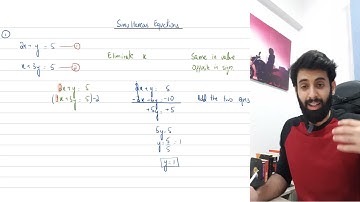 Simultaneous Equations
①
2x + y = 5 — ①
x + 3y = 5 — ②
Eliminate x
Same in value
Opposite in sign
2x + y = 5
(x + 3y = 5) × -2
2x + y = 5
-2x - 6y = -10
Add the two eqns
5y = 5
y = 5/5 = 1
y = 1